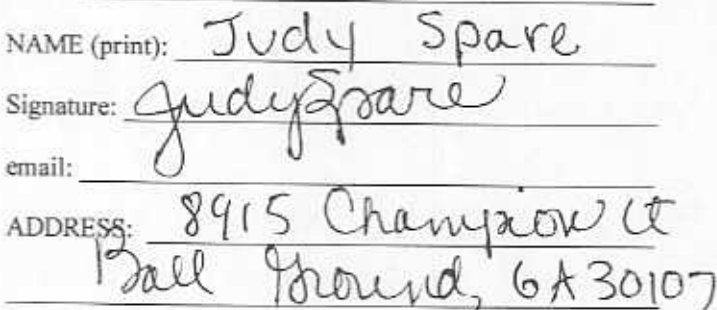 NAME (print): Judy Spare
Signature: Judy Spare
email:
ADDRESS: 8915 Champion Ct
Ball Ground, GA 30107